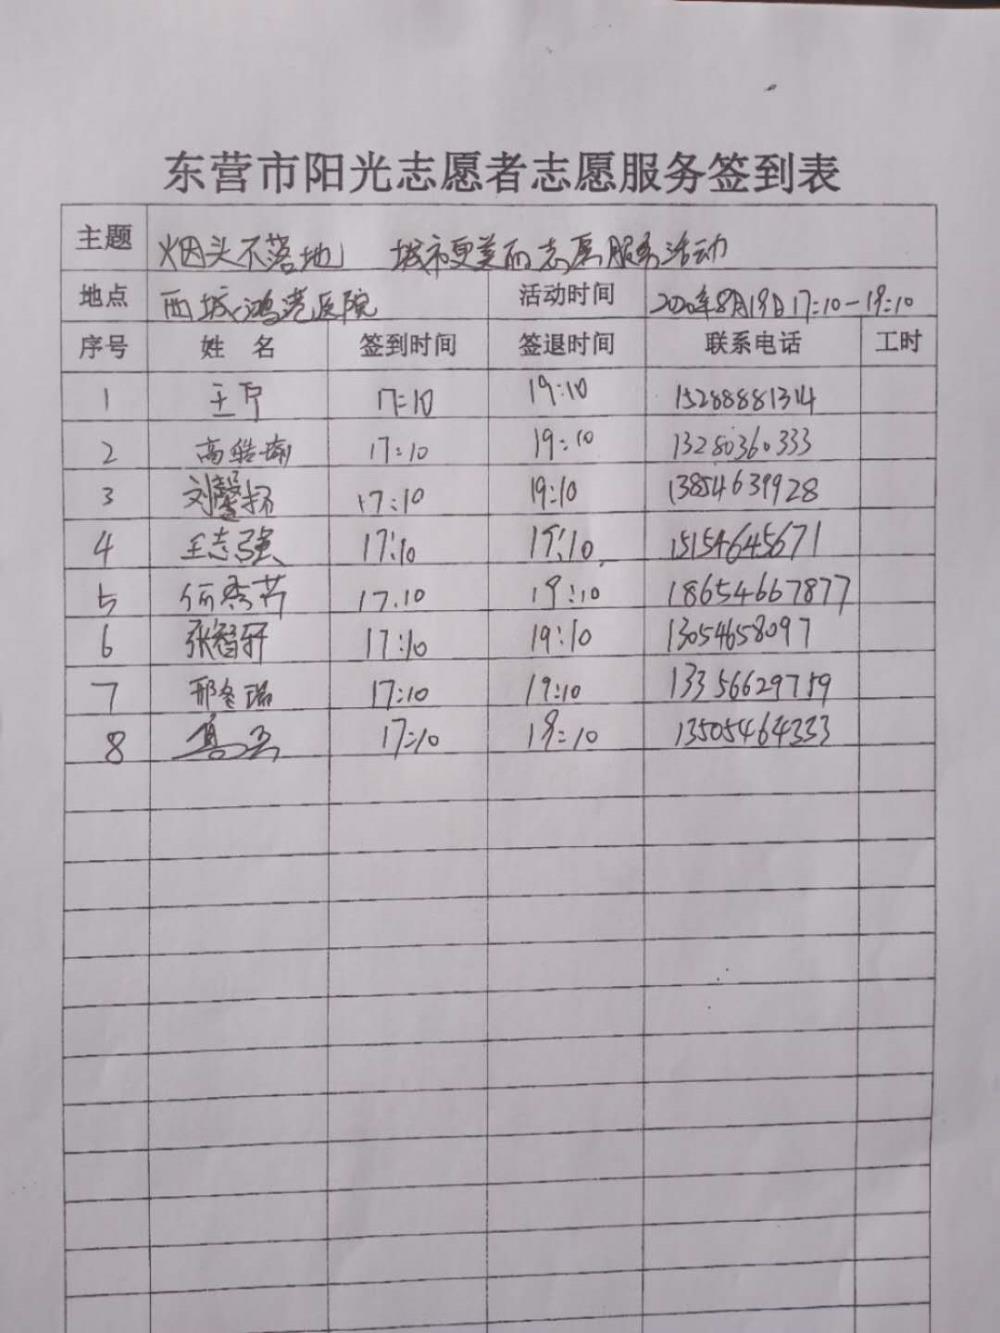 东营市阳光志愿者志愿服务签到表
主题 烟头不落地 城市更美丽志愿服务活动
地点 西城鸿港医院 活动时间 2020年8月19日17:10-19:10
序号 姓名 签到时间 签退时间 联系电话 工时
1 王宁 17:10 19:10 15288881314
2 高皓瑜 17:10 19:10 13280360333
3 刘馨扬 17:10 19:10 13854639928
4 王志强 17:10 19:10 15154645671
5 何秀芹 17.10 19:10 18654667877
6 张智轩 17:10 19:10 13054658097
7 邢冬瑞 17:10 19:10 13356629759
8 17:10 19:10 13505464333